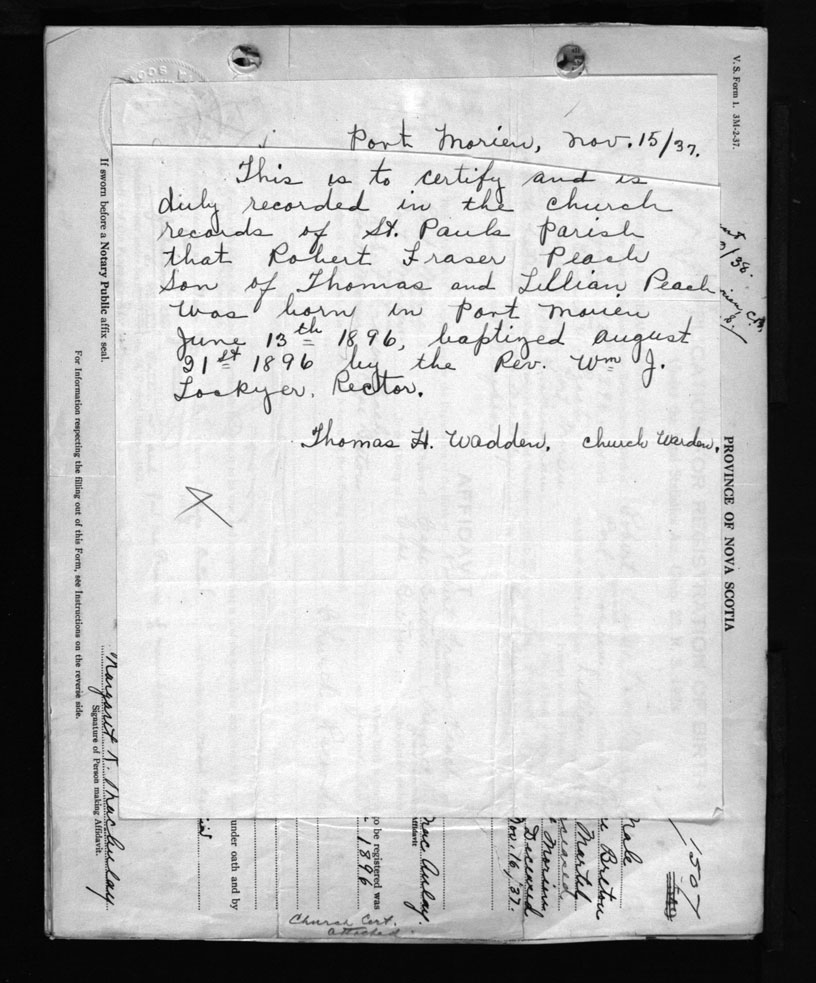 Port Morien, Nov. 15/37.
This is to certify and is
duly recorded in the church
records of St. Pauls parish
that Robert Fraser Peach
Son of Thomas and Lillian Peach
was born in Port Morien
June 13th 1896, baptized August
31st 1896 by the Rev. Wm J.
Lockyer, Rector.
Thomas H. Wadden, Church Warden.
V. S. Form 1. 3M-2-37.
/38.
C.B.
PROVINCE OF NOVA SCOTIA
1507
Male
Breton
Martel
Deceased
Morien
Deceased
Nov. 16/37.
Mac Aulay.
Affidavit
to be registered was
1896
under oath and by
Church Cert.
attached.
If sworn before a Notary Public affix seal.
Margaret D. MacAulay
Signature of Person making Affidavit.
For Information respecting the filling out of this Form, see Instructions on the reverse side.